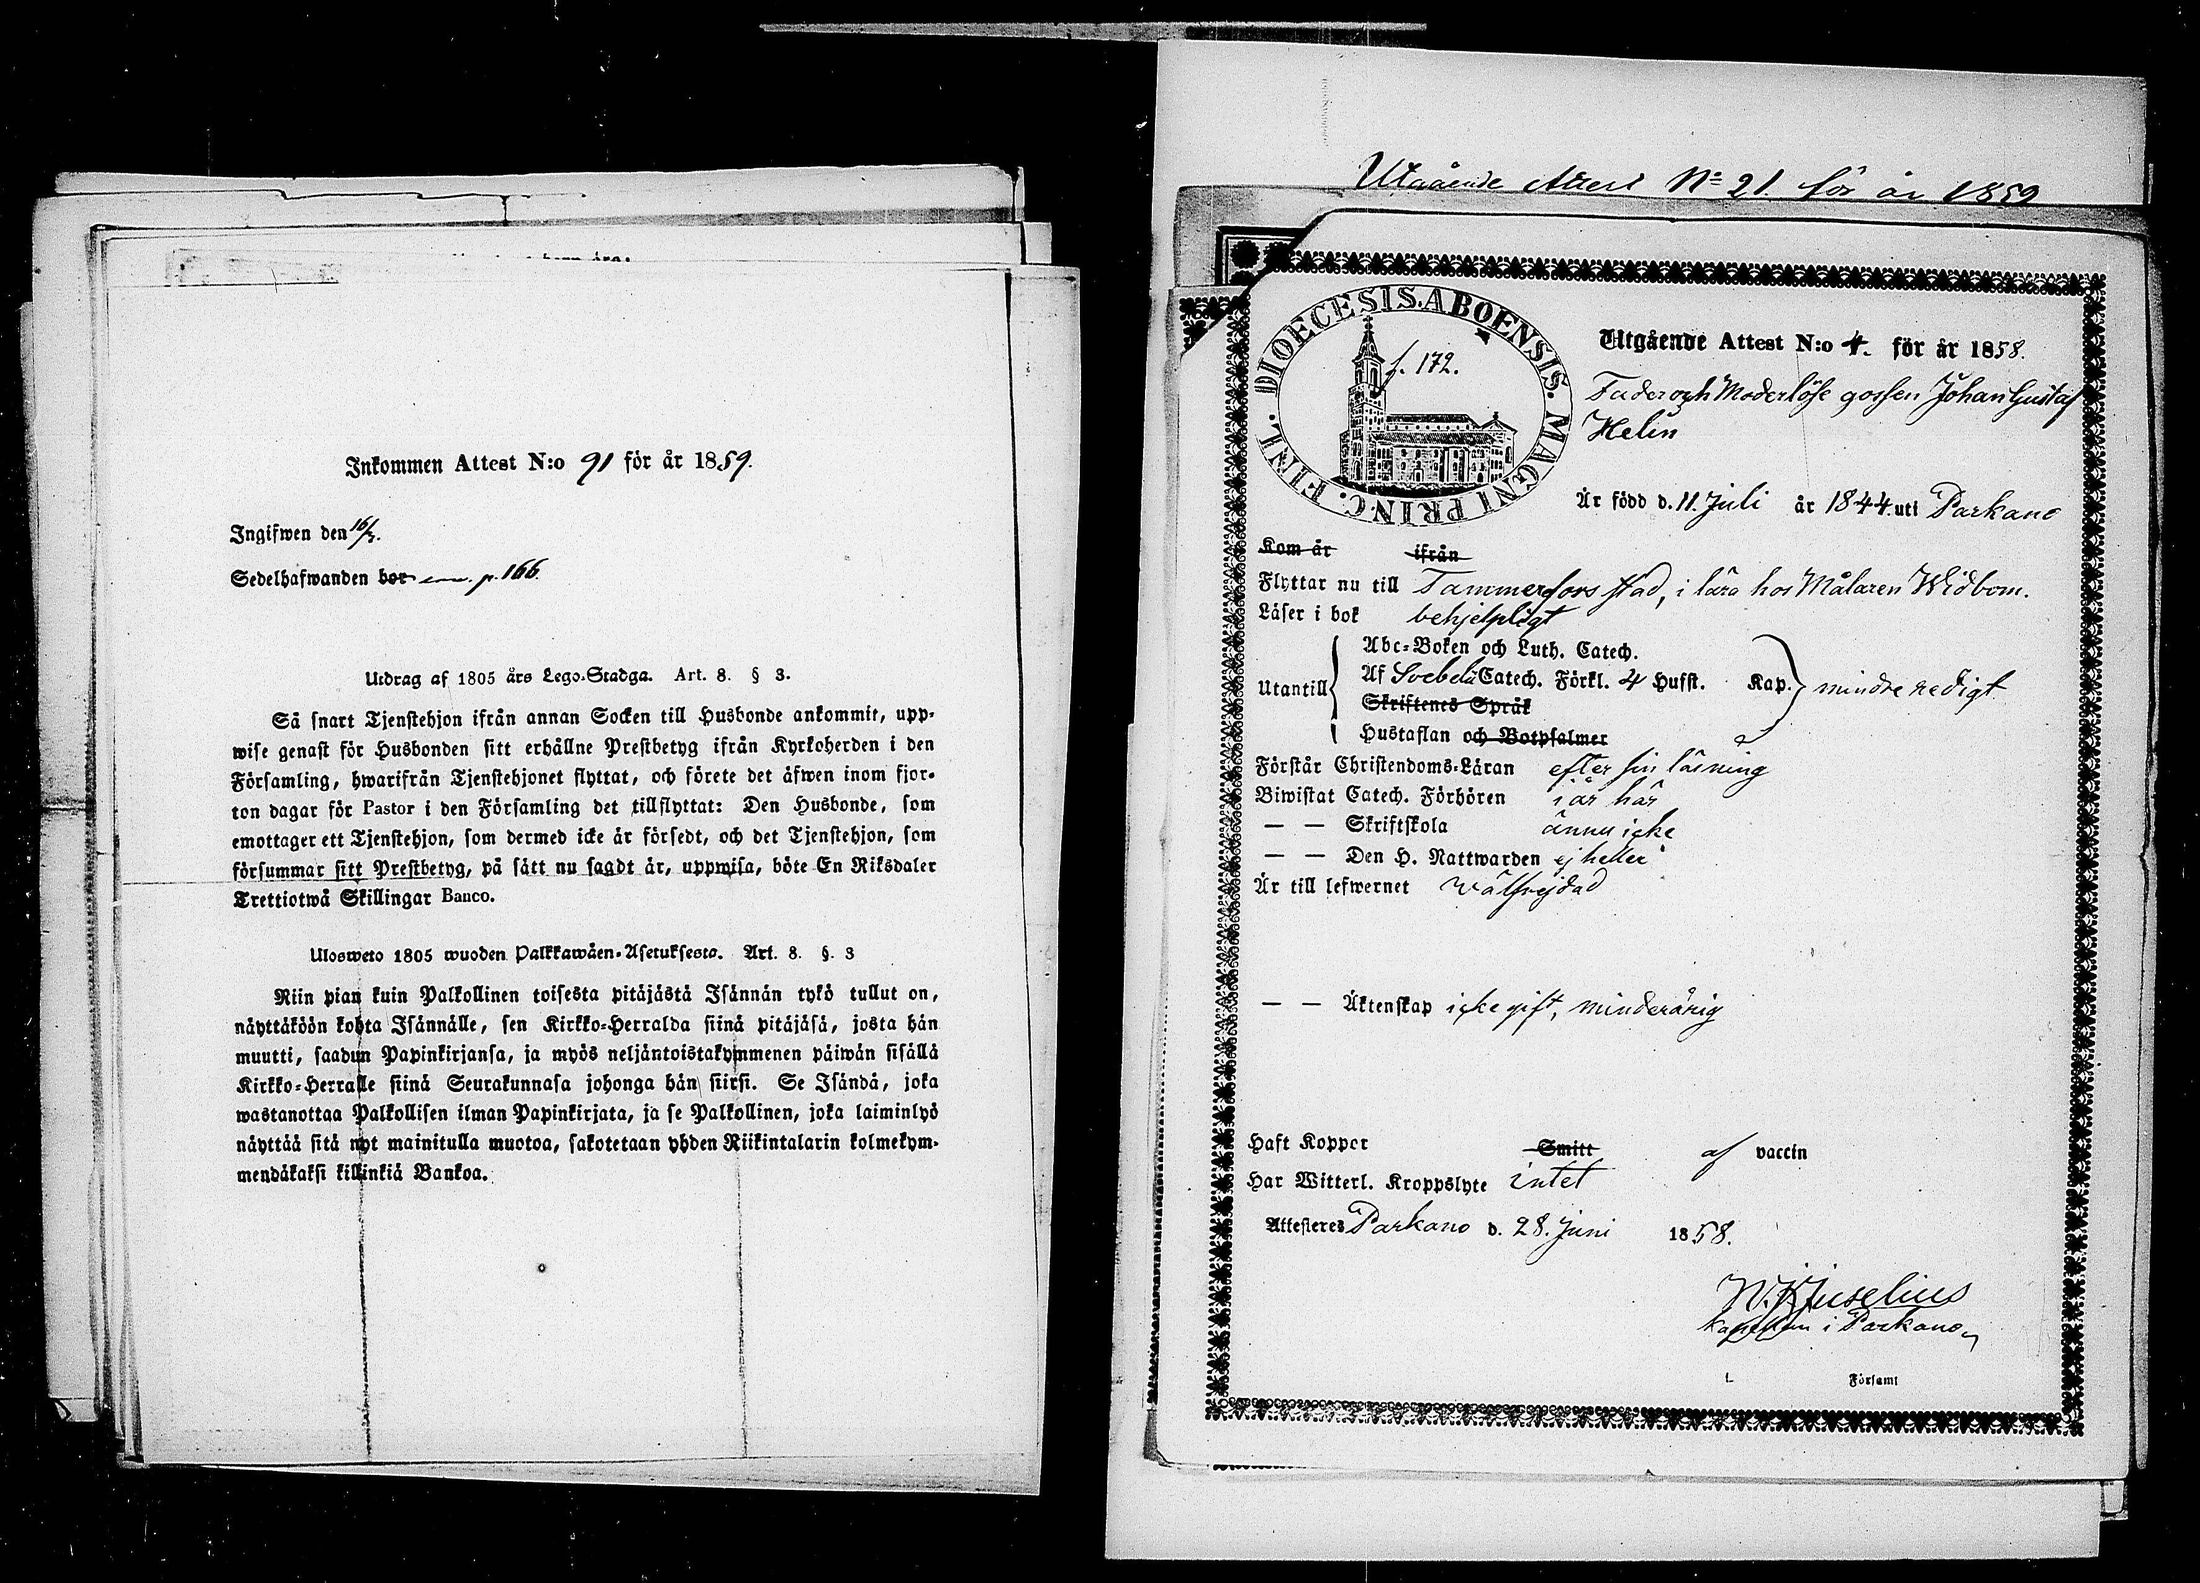 Inkommen Attest N:o 91 för år 1859.
Ingifwen den 16/3.
Sedelhafwanden bor p. 166.
Utdrag af 1805 års Lego-Stadga. Art. 8. § 3.
Så snart Tjenstehjon ifrån annan Socken till Husbonde ankommit, upp-
wise genast för Husbonden sitt erhållne Prestbetyg ifrån Kyrkoherden i den
Församling, hwarifrån Tjenstehjonet flyttat, och förete det äfwen inom fjor-
ton dagar för Pastor i den Församling det tillflyttat: Den Husbonde, som
emottager ett Tjenstehjon, som dermed icke är försedt, och det Tjenstehjon, som
försummar sitt Prestbetyg, på sätt nu sagdt är, uppwisa, böte En Riksdaler
Trettiotwå Skillingar Banco.
Ulosweto 1805 wuoden Palkkawäen-Asetuksesta. Art. 8. §. 3
Niin pian kuin Palkollinen toisesta pitäjästä Isännän tykö tullut on,
näyttäköön kohta Isännälle, sen Kirkko-Herralda siinä pitäjäsä, josta hän
muutti, saadun Papinkirjansa, ja myös neljäntoistakymmenen päiwän sisällä
Kirkko-Herralle siinä Seurakunnasa johonga hän siirsi. Se Isändä, joka
wastanottaa Palkollisen ilman Papinkirjata, ja se Palkollinen, joka laiminlyö
näyttää sitä nyt mainitulla muotoa, sakotetaan yhden Riikintalarin kolmekym-
mendäkaksi killinkiä Bankoa.
Utgående Attest No 21. för år 1859
DIOECESIS.ABOENSIS.MAGNI PRINC.FINL.
f. 172.
Utgående Attest N:o 4. för år 1858.
Fader och Moderlöse gossen Johan Gustaf
Helin
Är född d. 11. Juli år 1844. uti Parkano
Kom år ifrån
Flyttar nu till Tammerfors stad, i lära hos Målaren Widbom.
Läser i bok behjelpligt
Abc-Boken och Luth. Catech.
Utantill Af Svebelii Catech. Förkl. 4 Hufst. Kap. mindre redigt
Skriftenes Språk
Hustaflan och Botpsalmer
Förstår Christendoms-Läran efter sin läsning
Biwistat Catech. Förhören i år här
— — Skriftskola ännu icke
— — Den H. Nattwarden ej heller
Är till lefwernet wälfrejdad
— — Äktenskap icke gift, minderårig
Haft Koppor Smitt af vaccin
Har Witterl. Kroppslyte intet
Attesteres Parkano d. 28. Juni 1858.
Juselius
Kapellan i Parkano
i Församl